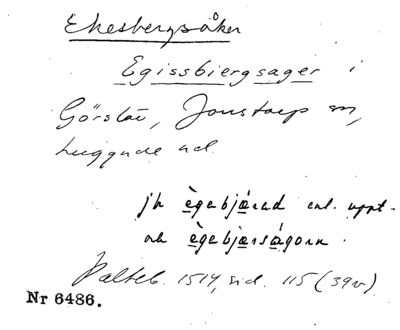 Ekesbergsåker
Egissbiergsager i
Görslöv, Jonstorp sn,
Luggude hd.
jfr ègebjǽrad enl. uppt-
och ègebjærságorn.
Palteb. 1514, sid. 115 (39v)
Nr 6486.